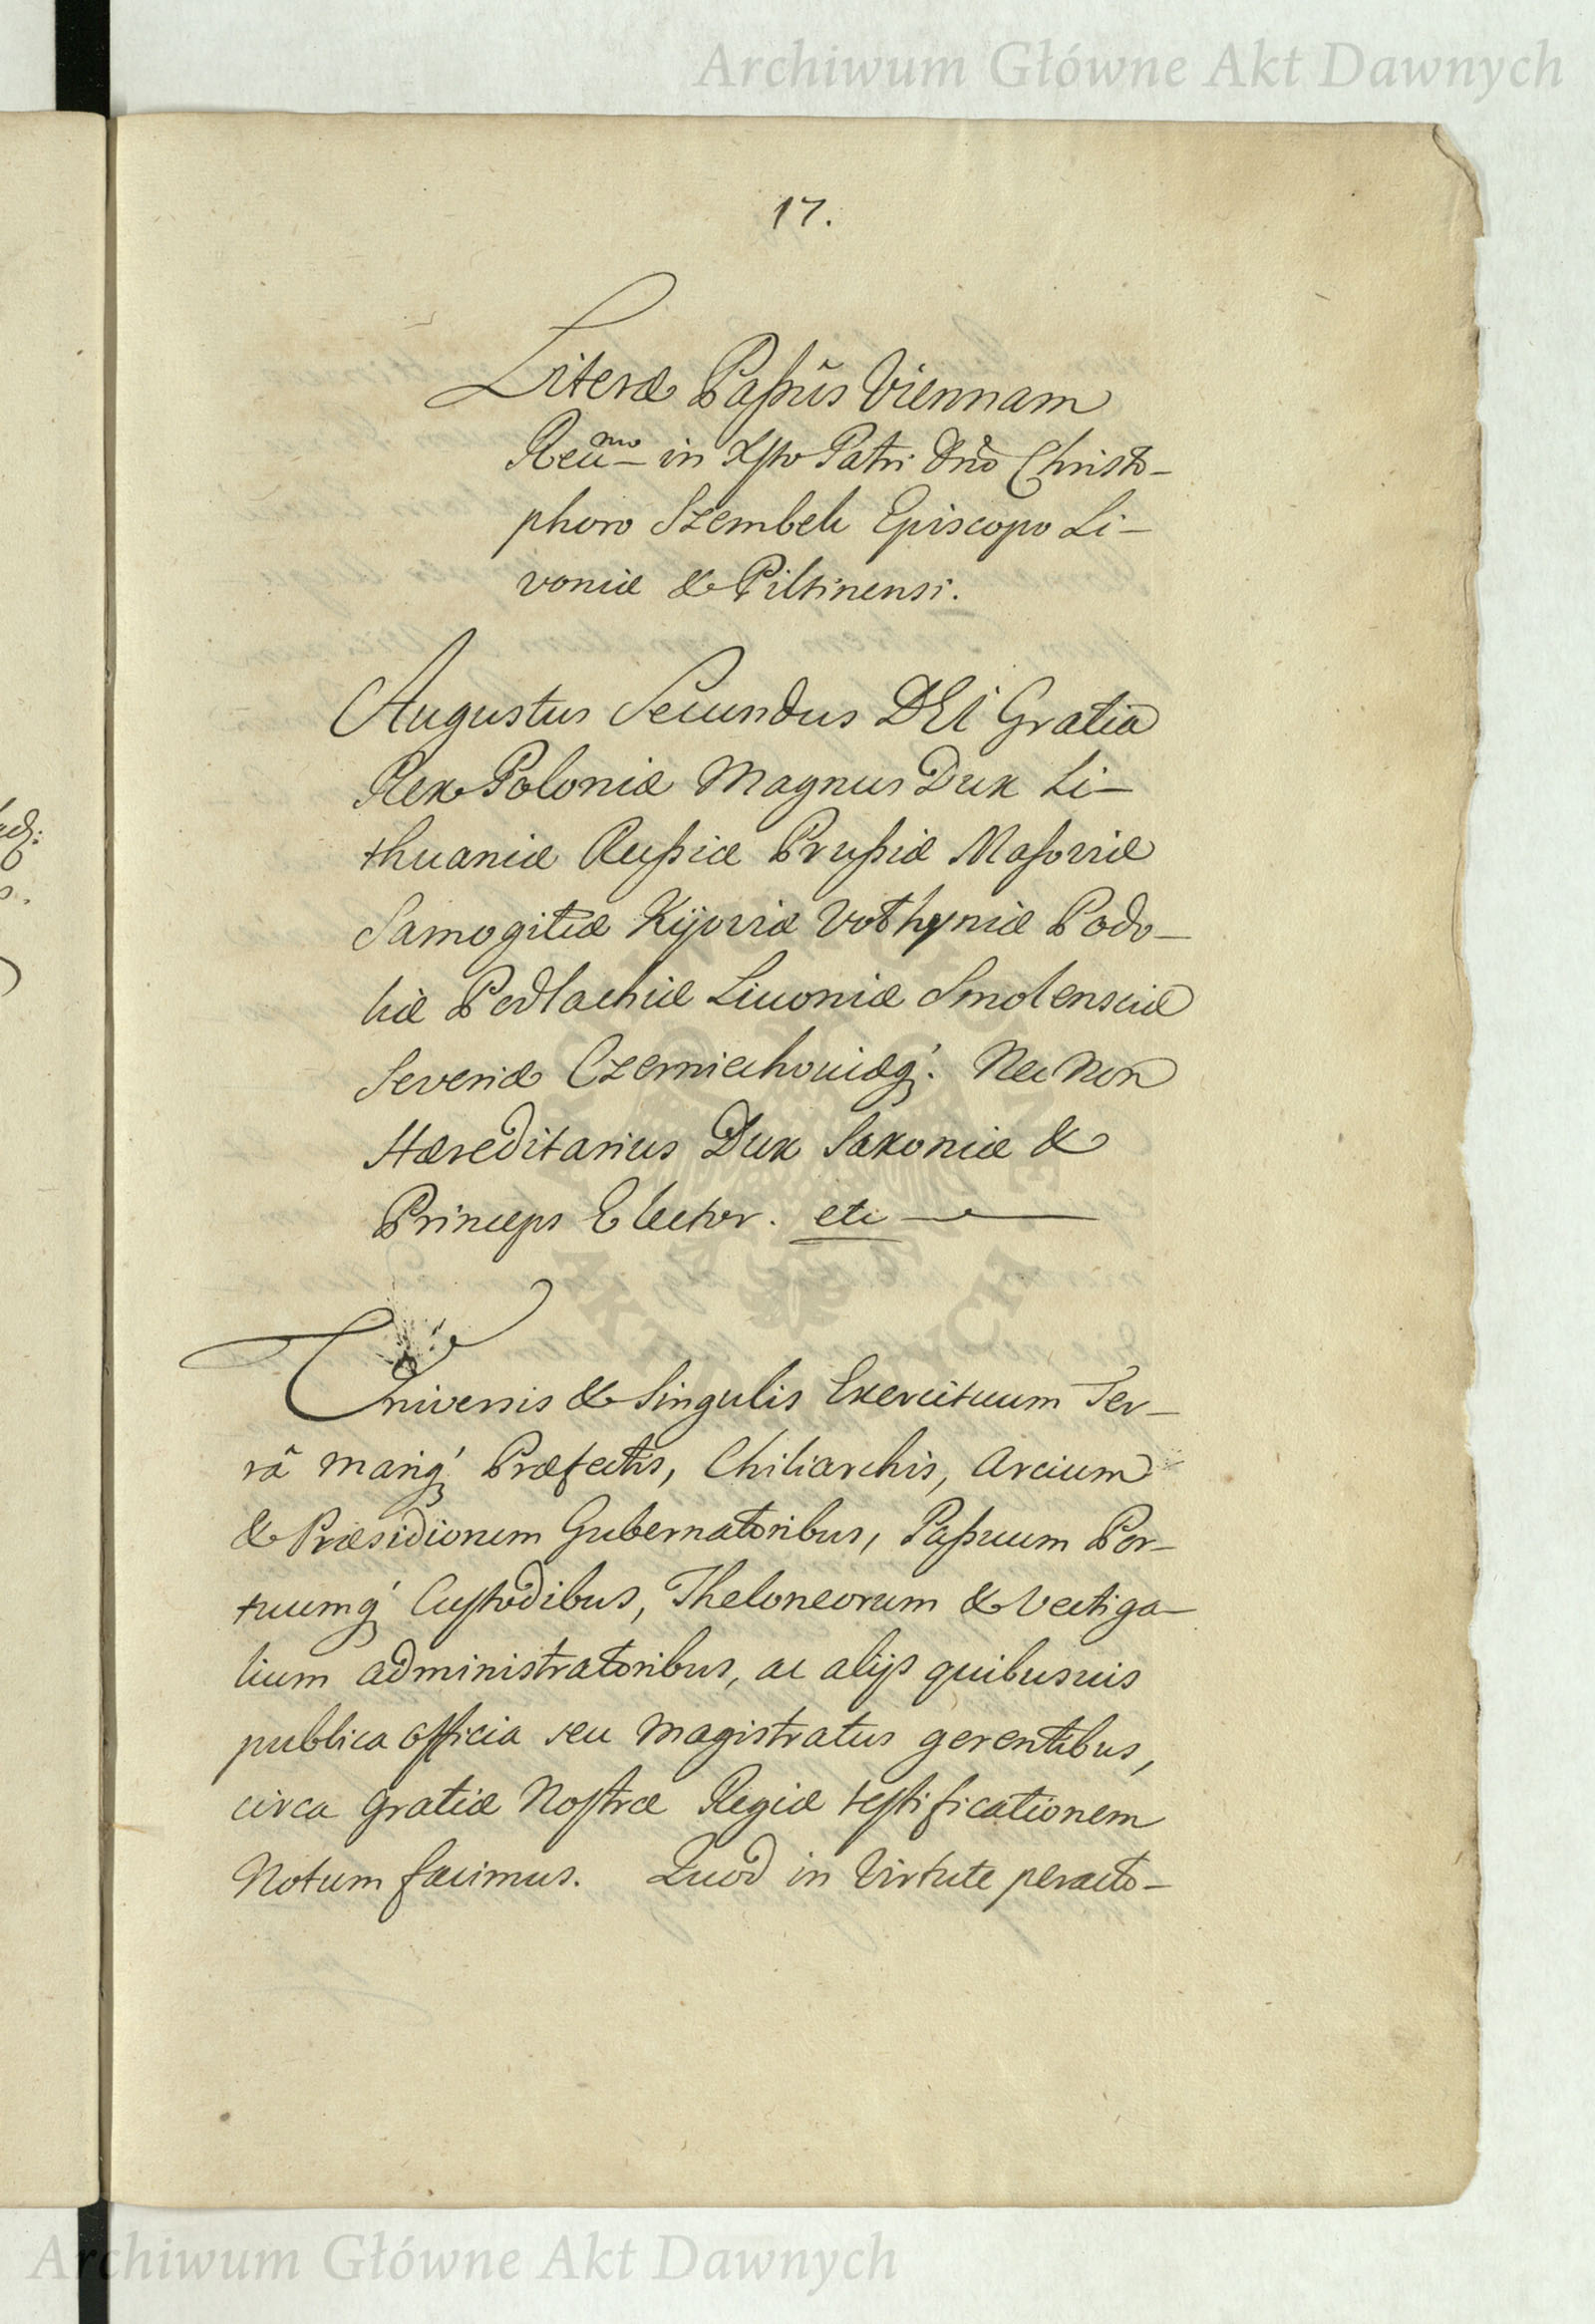 Archiwum Główne Akt Dawnych
17.
Literæ Paßûs Viennam
Reũ^mo in Xsto Patri Dño Christo-
phoro Szembek Episcopo Li-
voniæ & Piltinensi.
Augustus Secundus DEI Gratia
Rex Poloniæ Magnus Dux Li-
thuaniæ Rußiæ Prußiæ Masoviæ
Samogitiæ Kijoviæ Volhyniæ Podo-
liæ Podlachiæ Livoniæ Smolensciæ
Severiæ Czerniechoviæq́; Nec Non
Hæreditarius Dux Saxoniæ &
Princeps Elector. etc
Universis & Singulis Exercituum Ter-
râ mariq́; Præfectis, Chiliarchis, Arcium
& Præsidiorum Gubernatoribus, Paßuum Por-
tuumq́; Custodibus, Theloneorum & Vectiga-
lium administratoribus, ac alijs quibusvis
publica officia seu Magistratus gerentibus,
circa gratiæ Nostræ Regiæ testificationem
Notum facimus. Quod in Virtute peracto-
ARCHIWUM GŁÓWNE
AKT DAWNYCH
Archiwum Główne Akt Dawnych